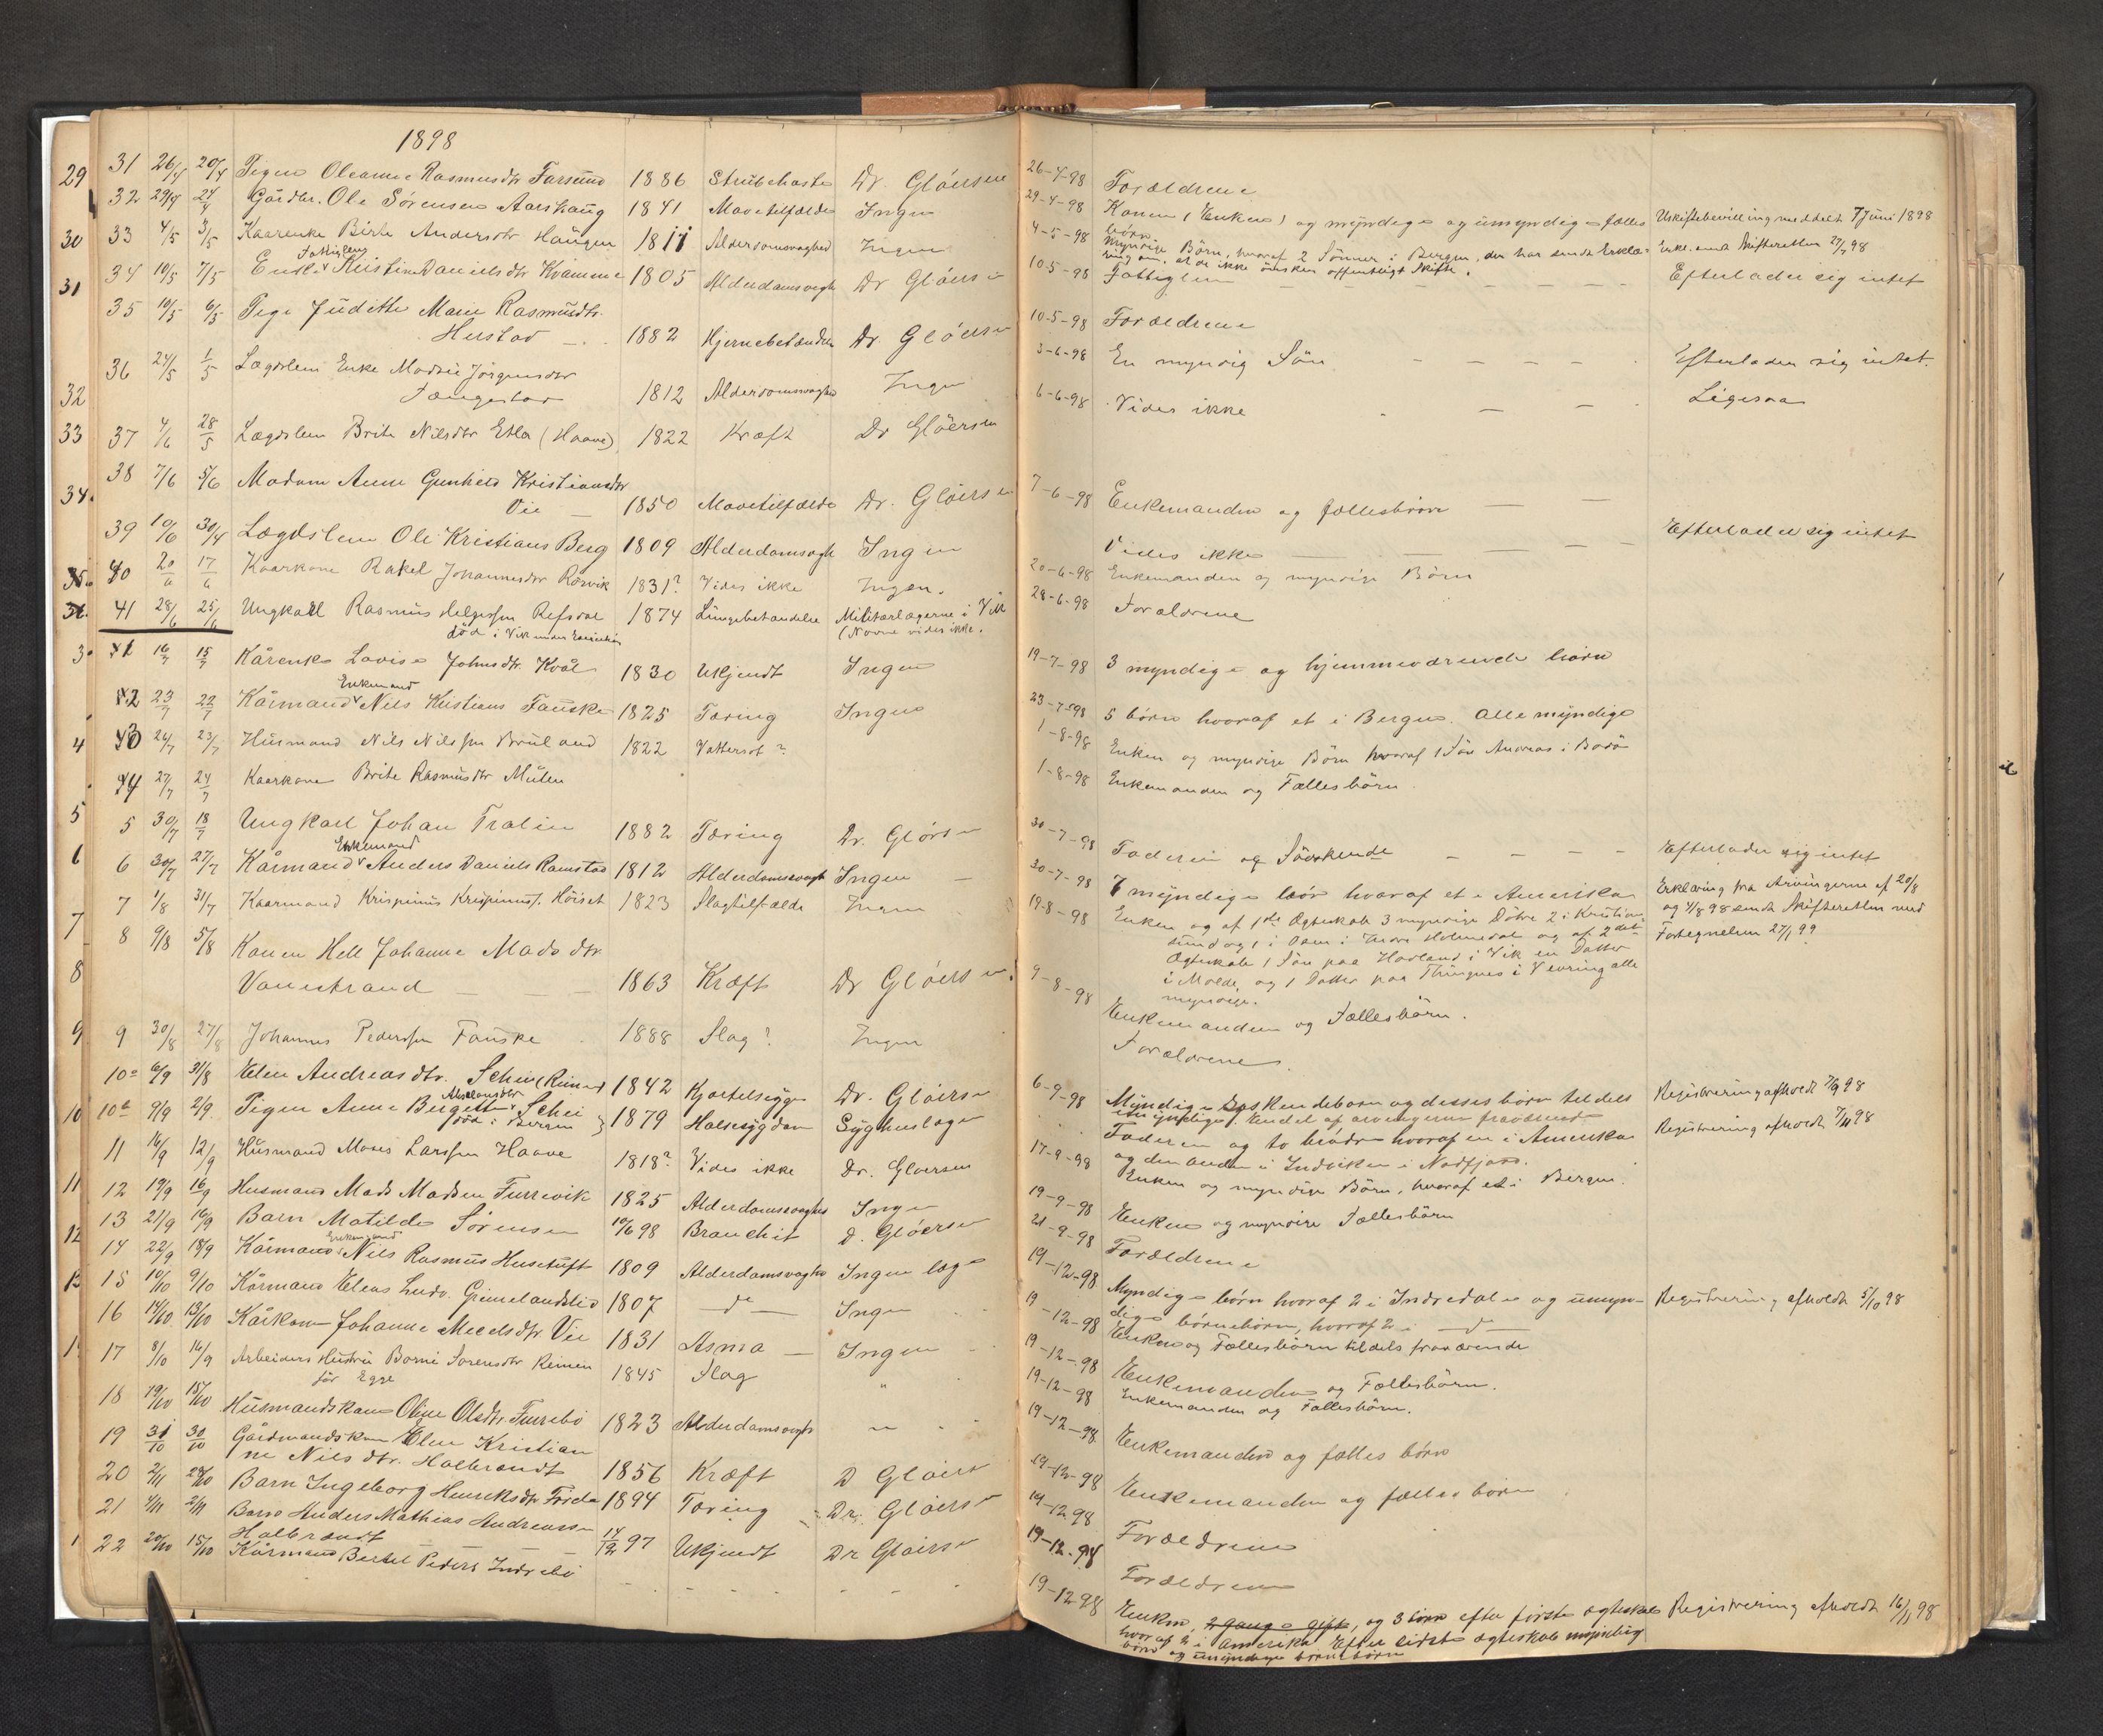 1898
29 31 26/4 20/4 Pigen Oleanne Rasmusdtr Farsund 1886 Strubehoste Dr. Gløersen
32 29/4 24/4 Gårdbr. Ole Sørensen Aarskaug 1841 Mavetilfælde Ingen
30 33 4/5 3/5 Kaarenke Birte Andersdtr Haugen 1811 Alderdomsvaghed Ingen
Fattiglem
31 34 10/5 7/5 Enke Kristine Danielsdtr Kvamme 1805 Alderdomsvagh Dr Gløersen
35 10/5 6/5 Pige Judithe Marie Rasmusdtr.
Hustad 1882 Hjernebetændelse Dr. Gløersen
36 24/5 1/5 Lægdslem Enke Madsie Jørgensdtr
32 1812 Alderdomsvaghed Ingen
33 37 4/6 28/5 Lægdslem Brite Nilsdtr Etla (Haave) 1822 Kræft Dr Gløersen
38 7/6 5/6 Madam Anne Gunhild Kristiansdtr
34. Vie 1850 Mavetilfælde Dr. Gløersen
39 10/6 30/4 Lægdslem Ole Kristians Berg 1809 Alderdomsvagh Ingen
35. 40 20/6 17/6 Kaarkone Rakel Johannesdtr Rørvik 1831? Vides ikke Ingen.
41 28/6 25/6 Ungkarl Rasmus Helgesen Refsdal 1874 Lungebetændelse Militærlægerne i Vik
død i Vik under (Navne vides ikke.
3 41 16/7 15/7 Kårenke Lovise Johnsdtr. Kvål 1830 Ukjendt Ingen
Enkemand
42 23/7 22/7 Kårmand Nils Kristians Fauske 1825 Tæring Ingen
4 43 26/7 23/7 Husmand Nils Nilssen Bruland 1822 Vattersot?
44 27/7 24/7 Kaarkone Brite Rasmusdtr Mulen
5 5 30/7 18/7 Ungkarl Johan Tralin 1882 Tæring Dr. Gløersen
Enkemand
6 6 30/7 27/7 Kårmand Anders Daniels Ramstad 1812 Alderdomsvagh Ingen
7 1/8 31/7 Kaarmand Krispinus Krispinuss. Høiset 1823 Slagtilfælde Ingen
7 8 9/8 5/8 Konen Hell Johanne Mads dtr
8 Vonestrand 1863 Kræft Dr Gløersen
9 9 30/8 27/8 Johannes Pederssen Fauske 1888 Slag? Ingen
10a 6/9 31/8 Elen Andreasdtr. Schei (Reimer) 1842 Kjortelsyge Dr. Gløersen
10 10b 9/9 2/9 Pigen Anne Bergette Schei 1879 Halssygdom Syghuslæge
død i Bergen
11 16/9 12/9 Husmand Moses Larssen Haave 1818? Vides ikke Dr. Gloersen
11 12 19/9 16/9 Husmand Mads Madsen Furrevik 1825 Alderdomsvaghed Ingen
13 21/9 16/9 Barn Matilde Sørensen 10/6 98 Bronchit D. Gløersen
Enkemand
12 14 22/9 18/9 Kårmand Nils Rasmus Husetuft 1809 Alderdomsvaghed Ingen læge
13 15 10/10 9/10 Kårmand Elias Ludv. Grimelandslid 1807 do Ingen
16 14/10 13/10 Kårkone Johanne Mecelsdtr Vie 1831 Asma Ingen
17 8/10 16/9 Arbeiders Hustru Borni Sorensdtr Reimen 1845 Slag "
før Egge
18 19/10 15/10 Husmandskone Oline Olsdtr. Furrebø 1823 Alderdomsvagh "
19 31/10 30/10 Gårdmandskone Elen Kristian
ne Nilsdtr. Halbrændt 1856 Kræft D Gløersen
20 2/11 28/10 Barn Ingeborg Henriksdtr Førde 1894 Tæring Dr. Gløersen
21 4/11 2/11 Barn Anders Mathias Andreassen
Halbrændt 14/12 97 Ukjendt Dr Gløersen
22 20/10 15/10 Kårmand Bertel Peders Indrebø
26-4-98 Forældrene
29-4-98 Konen (Enken) og myndige og umyndige fælles Uskiftebevilling meddelt 7 Juni 1898
børn.
4-5-98 Myndige Børn, hvoraf 2 Sønner i Bergen, der har sendt Erklæ= Erkl. sendt Skifteretten 27/7 98
ring om, at de ikke ønsker offentligt Skifte.
10-5-98 Fattiglem Efterlader sig intet
10-5-98 Forældrene
3-6-98 En myndig Søn Efterlader sig intet.
6-6-98 Vides ikke Ligesaa
7-6-98 Enkemanden og fællesbørn
Vides ikke Efterlader sig intet
20-6-98 Enkemanden og myndige Børn
28-6-98 Forældrene
19-7-98 3 myndige og hjemmeværende børn
23-7-98 5 børn hvoraf et i Bergen. Alle myndige
1-8-98 Enken og myndige Børn hvoraf 1 Søn Andreas i Bodø
1-8-98 Enkemanden og Fællesbørn.
30-7-98 Faderen og Søskende Efterlader sig intet
30-7-98 7 myndige børn hvoraf et i Amerika Erklæring fra Arvingerne af 20/8
19-8-98 Enken og af 1ste Ægteskab 3 myndige Døtre 2 i Kristian= og 4/8 98 sendt Skifteretten med
sund og 1 i Osen i Indre Holmedal og af 2det Fortegnelsen 27/1 99
Ægteskab 1 Søn paa Hovland i Vik en Datter
i Molde, og 1 Datter paa Thingnes i Vevring alle
myndige.
9-8-98 Enkemanden og Fællesbørn.
Forældrene.
6-9-98 Myndige Søskendebørn og desses børn tildels Registrering afholdt 7/9 98
umyndige. Endel af arvingerne fraværende
Faderen og to brødre hvoraf en i Amerika Registrering afholdt 7/11 98
og den anden i Indviken i Nordfjord.
17-9-98 Enken og myndige Børn, hvoraf et i Bergen.
19-9-98 Enken og myndige Fællesbørn
21-9-98 Forældrene
19-12-98 Myndige børn hvoraf 2 i Indredale og umyn- Registrering afholdt 5/10 98
dige børnebørn, hvoraf 2 i do
19-12-98 Enken og Fællesbørn tildels fraværende
19-12-98 Enkemanden og Fællesbørn.
19-12-98 Enkemanden og Fællesbørn.
19-12-98 Enkemanden og fælles børn
19-12-98 Enkemanden og fælles børn
19-12-98 Forældrene
19-12-98 Forældrene
19-12-98 Enken, 2 gange gift, og 3 børn efter første ægteskab Registrering afholdt 16/11 98
hvoraf 2 i Amerika. Efter sidste ægteskab myndige
børn og umyndige børnebørn